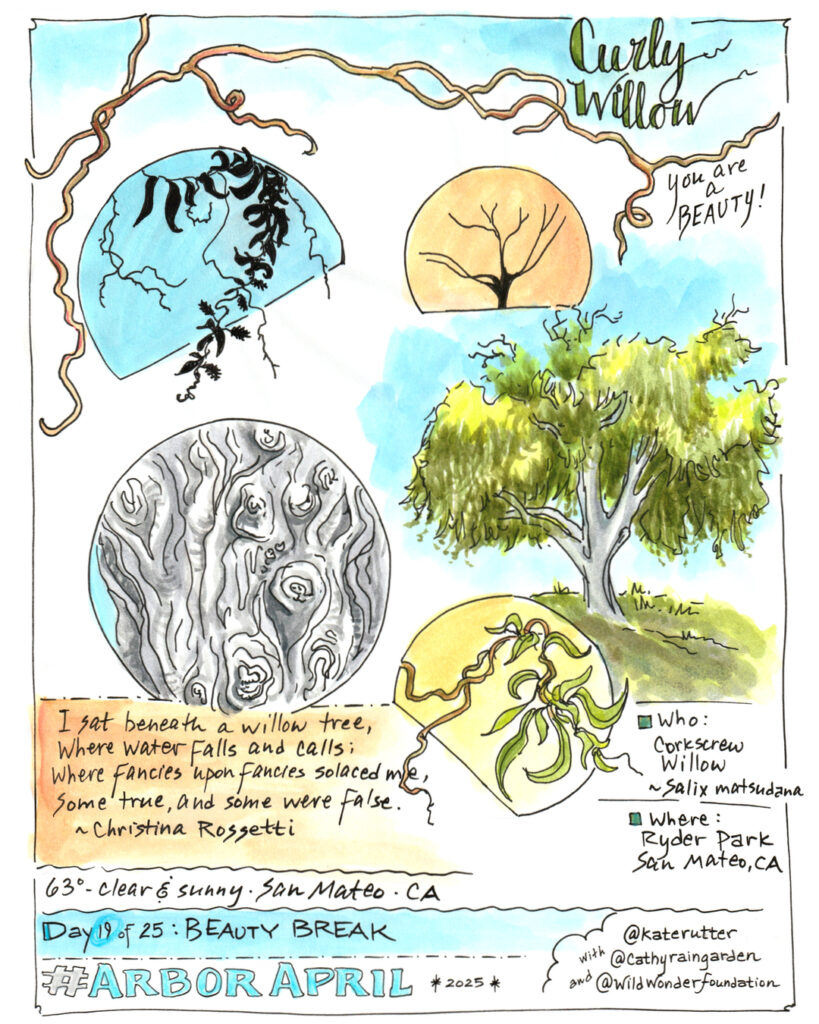 Curly
Willow
you are
a
BEAUTY!
I sat beneath a willow tree,
Where water falls and calls;
Where fancies upon fancies solaced me,
Some true, and some were false.
~Christina Rossetti
Who:
Corkscrew
Willow
~Salix matsudana
Where:
Ryder Park
San Mateo, CA
63°-clear & sunny. San Mateo · CA
Day 19 of 25: BEAUTY BREAK
#ARBOR APRIL *2025*
@katerutter
with @cathyraingarden
and @wildwonderfoundation